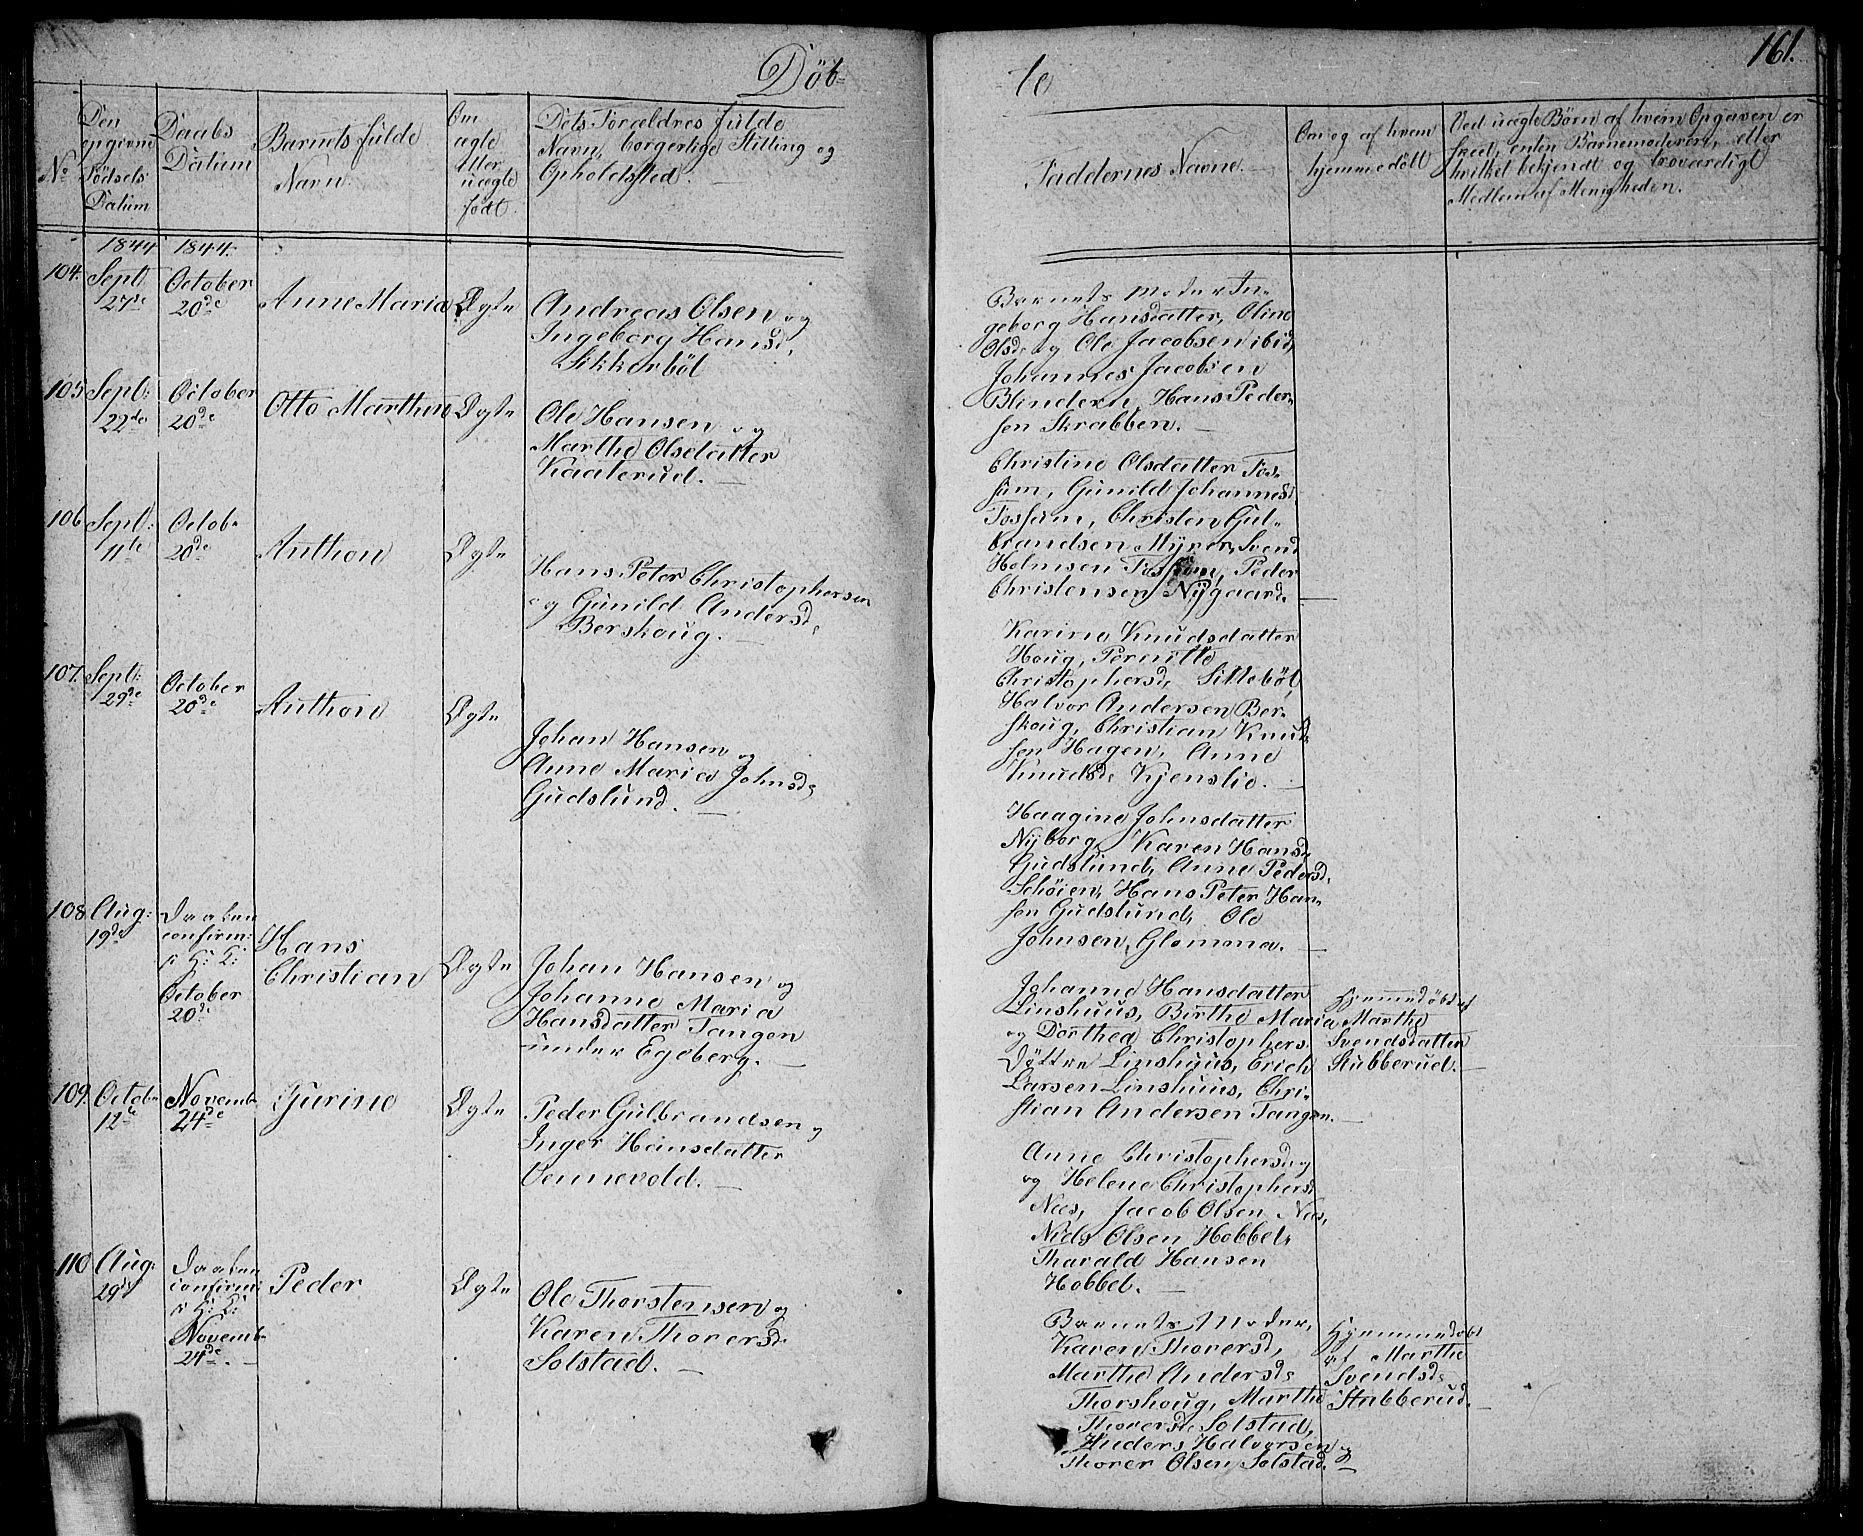 Döb-
te
161.
No
Den opgivne Födsels Datum
Daabs Datum
Barnets fulde Navn
Om ægte eller uægte födt.
Dets Forældres fulde Navn, borgerlige Stilling og Opholdssted.
Faddernes Navne.
Om og af hvem hjemmedöbt
Ved uægte Börn af hvem Opgaven er skeet, enten Barnemoderen, eller hvilket bekjendt og troværdigt Medlem af Menigheden.
1844 1844.
104. Sept 27de
October 20de
Anne Maria
Ægte
Andreas Olsen og
Ingeborg Hansd.
Sikkerböl
Barnets Moder In-
geborg Hansdatter, Oline
Olsd. og Ole Jacobsen ibid,
Johannes Jacobsen
Blindern, Hans Peder-
sen Skrabben.
105 Sept: 22de
October 20de
Otto Marthin
Ægte
Ole Hansen og
Marthe Olsdatter
Kaaterud.
Christine Olsdatter Fos-
sum, Gunild Johannesd
Fossum, Christen Gul-
brandsen Myrer, Svend
Holmsen Fossum, Peder
Christensen Nygaard.
106 Sept: 11te
Octob. 20de
Anthon
Ægte
Hans Peter Christophersen
og Gunild Andersd.
Berskoug.
Karine Knudsdatter
Houg, Pernille
Christophersd. Sitteböl,
Halvor Andersen Ber-
skoug, Christian Knud-
sen Hagen, Anne
Knudsd. Kjenslie.
107. Sept: 29de
October 20de
Anthon
Ægte
Johan Hansen og
Anne Maria Johnsd.
Gudslund.
Haagine Johnsdatter
Nyborg, Karen Hansd.
Gudslund, Anne Pedersd.
Schöien, Hans Peter Han-
sen Gudslund, Ole
Johnsen, Glomma.
108 Aug: 19de
Daaben
confirm:
i H: K:
October
20de
Hans
Christian
Ægte
Johan Hansen og
Johanne Maria
Hansdatter Tangen
under Egeberg.
Johanne Hansdatter
Linshuus, Birthe Maria
og Dorthea Christophers
Döttre Linshuus, Erich
Larsen Linshuus, Chri-
stian Andersen Tangen.
Hjemmedöbt af
Marthe
Svendsdatter
Stubberud.
109. Octob. 12te
Novemb. 24de
Gurine
Ægte
Peder Gulbrandsen og
Inger Hansdatter
Vennevold.
Anne Christophersd. og
og Helene Christophersd
Næs, Jacob Olsen Næs,
Niels Olsen Hobbel,
Tharald Hansen
Hobbel.
110 Aug. 29de
Daaben
confirm:
i H: K:
Novemb.
24de.
Peder
Ægte
Ole Thorstensen og
Karen Thorersd.
Solstad.
Barnets Moder,
Karen Thorersd,
Marthe Andersd.
Thorshoug, Marthe
Thorersd. Solstad,
Anders Halvorsen og
Thorer Olsen Solstad.
Hjemmedöbt
af Marthe
Svendsd.
Stubberud.